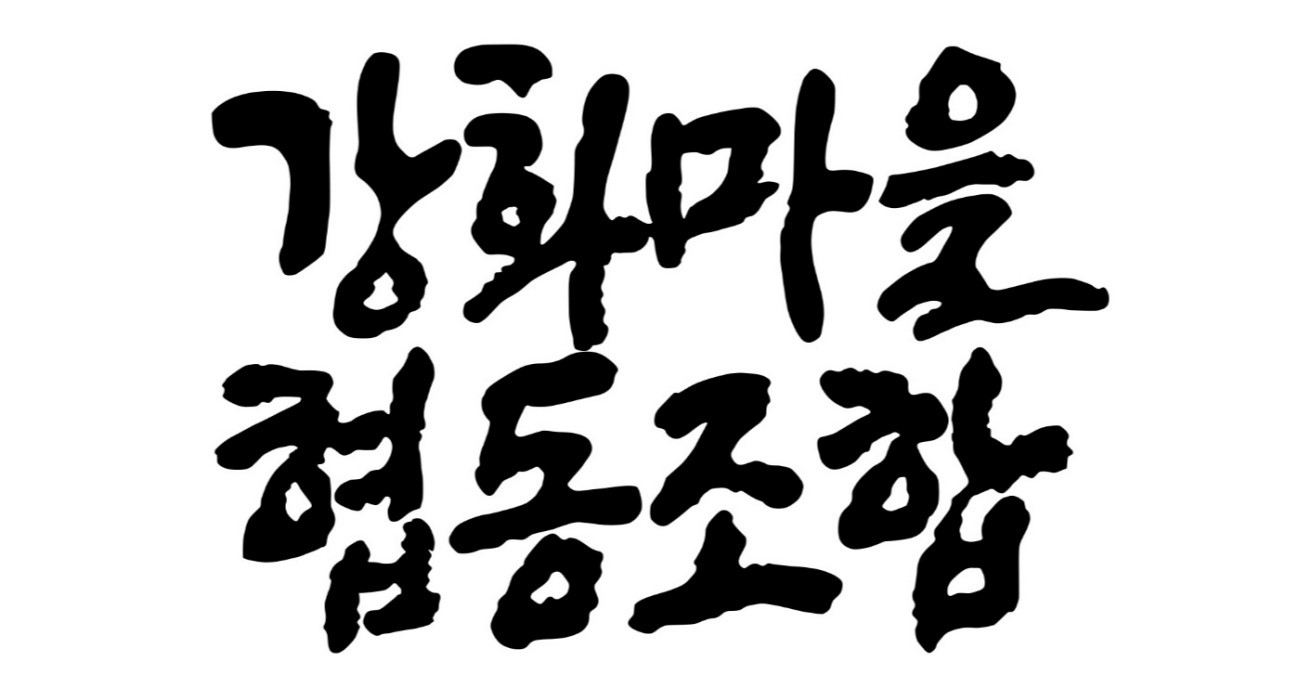 강화마을
협동조합